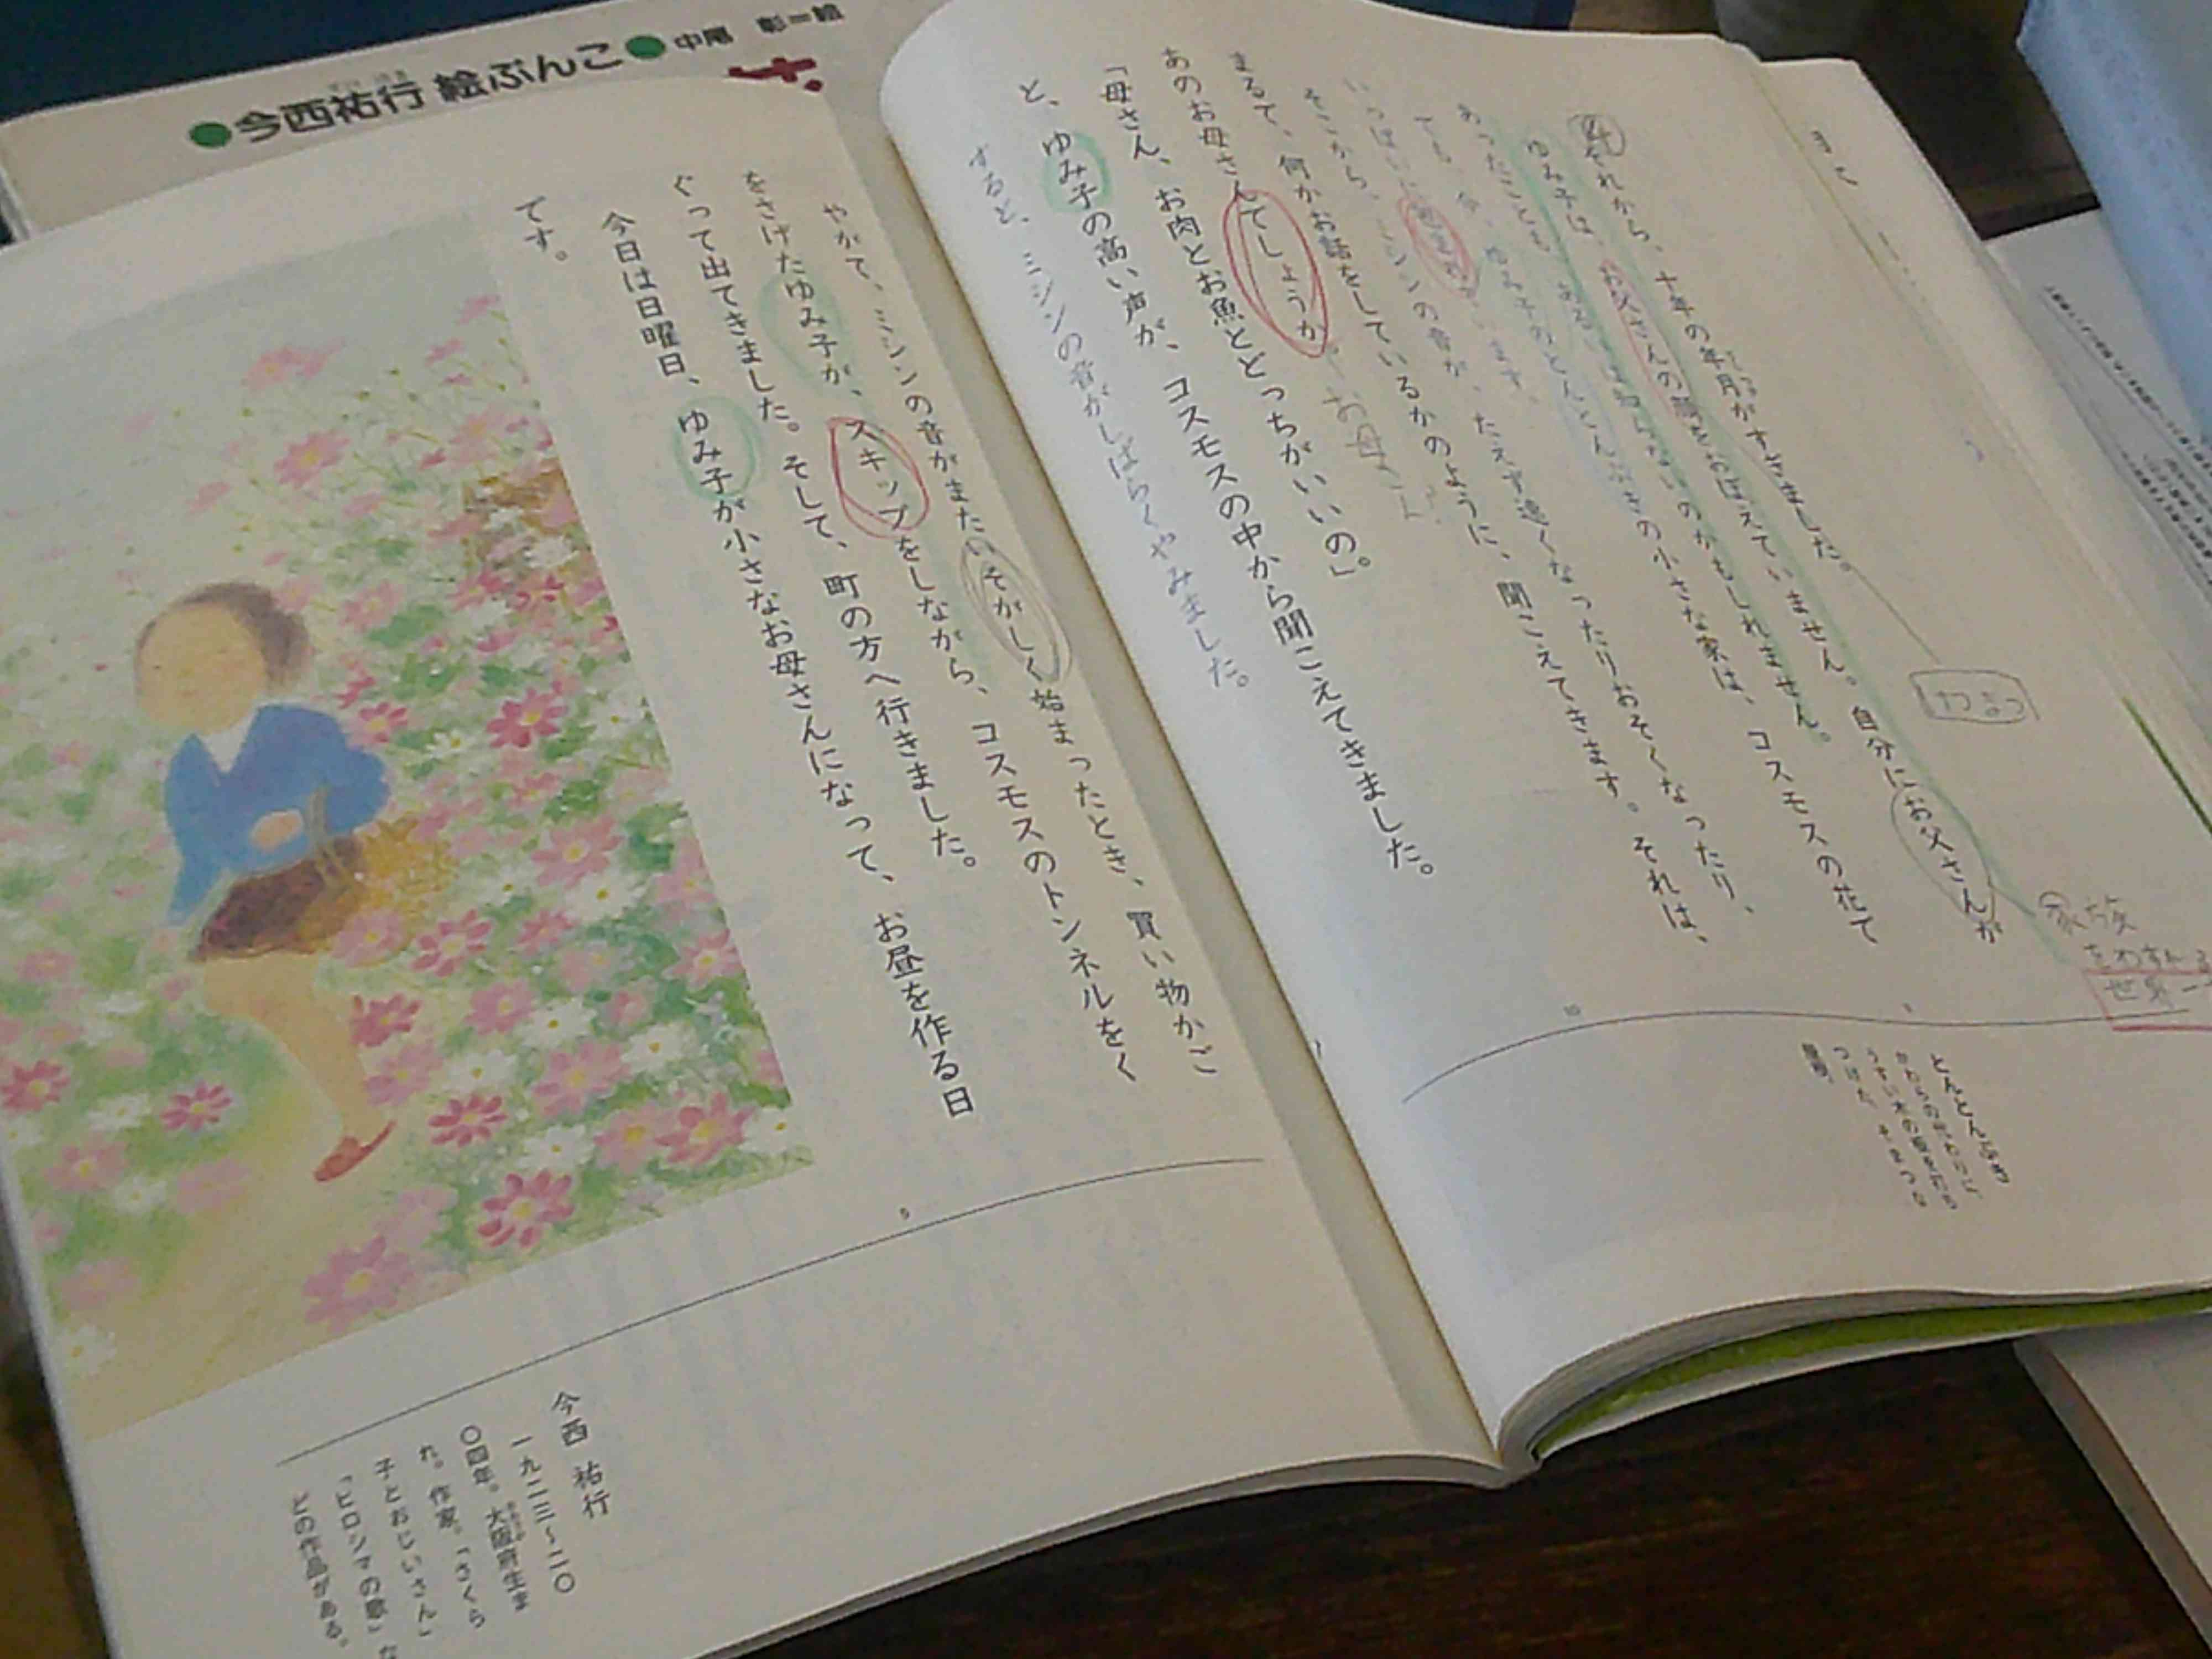 ●今西祐行 絵ぶんこ●中尾 彰=絵
④
それから、十年の年月がすぎました。
ゆみ子は、お父さんの顔をおぼえていません。自分にお父さんが
あったことも、あるいは知らないのかもしれません。
でも、今、ゆみ子のとんとんぶきの小さな家は、コスモスの花で
いっぱいに包まれています。
そこから、ミシンの音が、たえず速くなったりおそくなったり、
まるで、何かお話をしているかのように、聞こえてきます。それは、
あのお母さんでしょうか。
「母さん、お肉とお魚とどっちがいいの。」
と、ゆみ子の高い声が、コスモスの中から聞こえてきました。
すると、ミシンの音がしばらくやみました。
家族
世界一
とんとんぶき
かわらのかわりに
うすい木の板を打ち
つけた、そまつな
屋根。
10
5
やがて、ミシンの音がまたいそがしく始まったとき、買い物かご
をさげたゆみ子が、スキップをしながら、コスモスのトンネルをく
ぐって出てきました。そして、町の方へ行きました。
今日は日曜日、ゆみ子が小さなお母さんになって、お昼を作る日
です。
5
今西 祐行
一九二三〜二〇
〇四年。大阪府生ま
れ。作家。「さくら
子とおじいさん」
「ヒロシマの歌」な
どの作品がある。